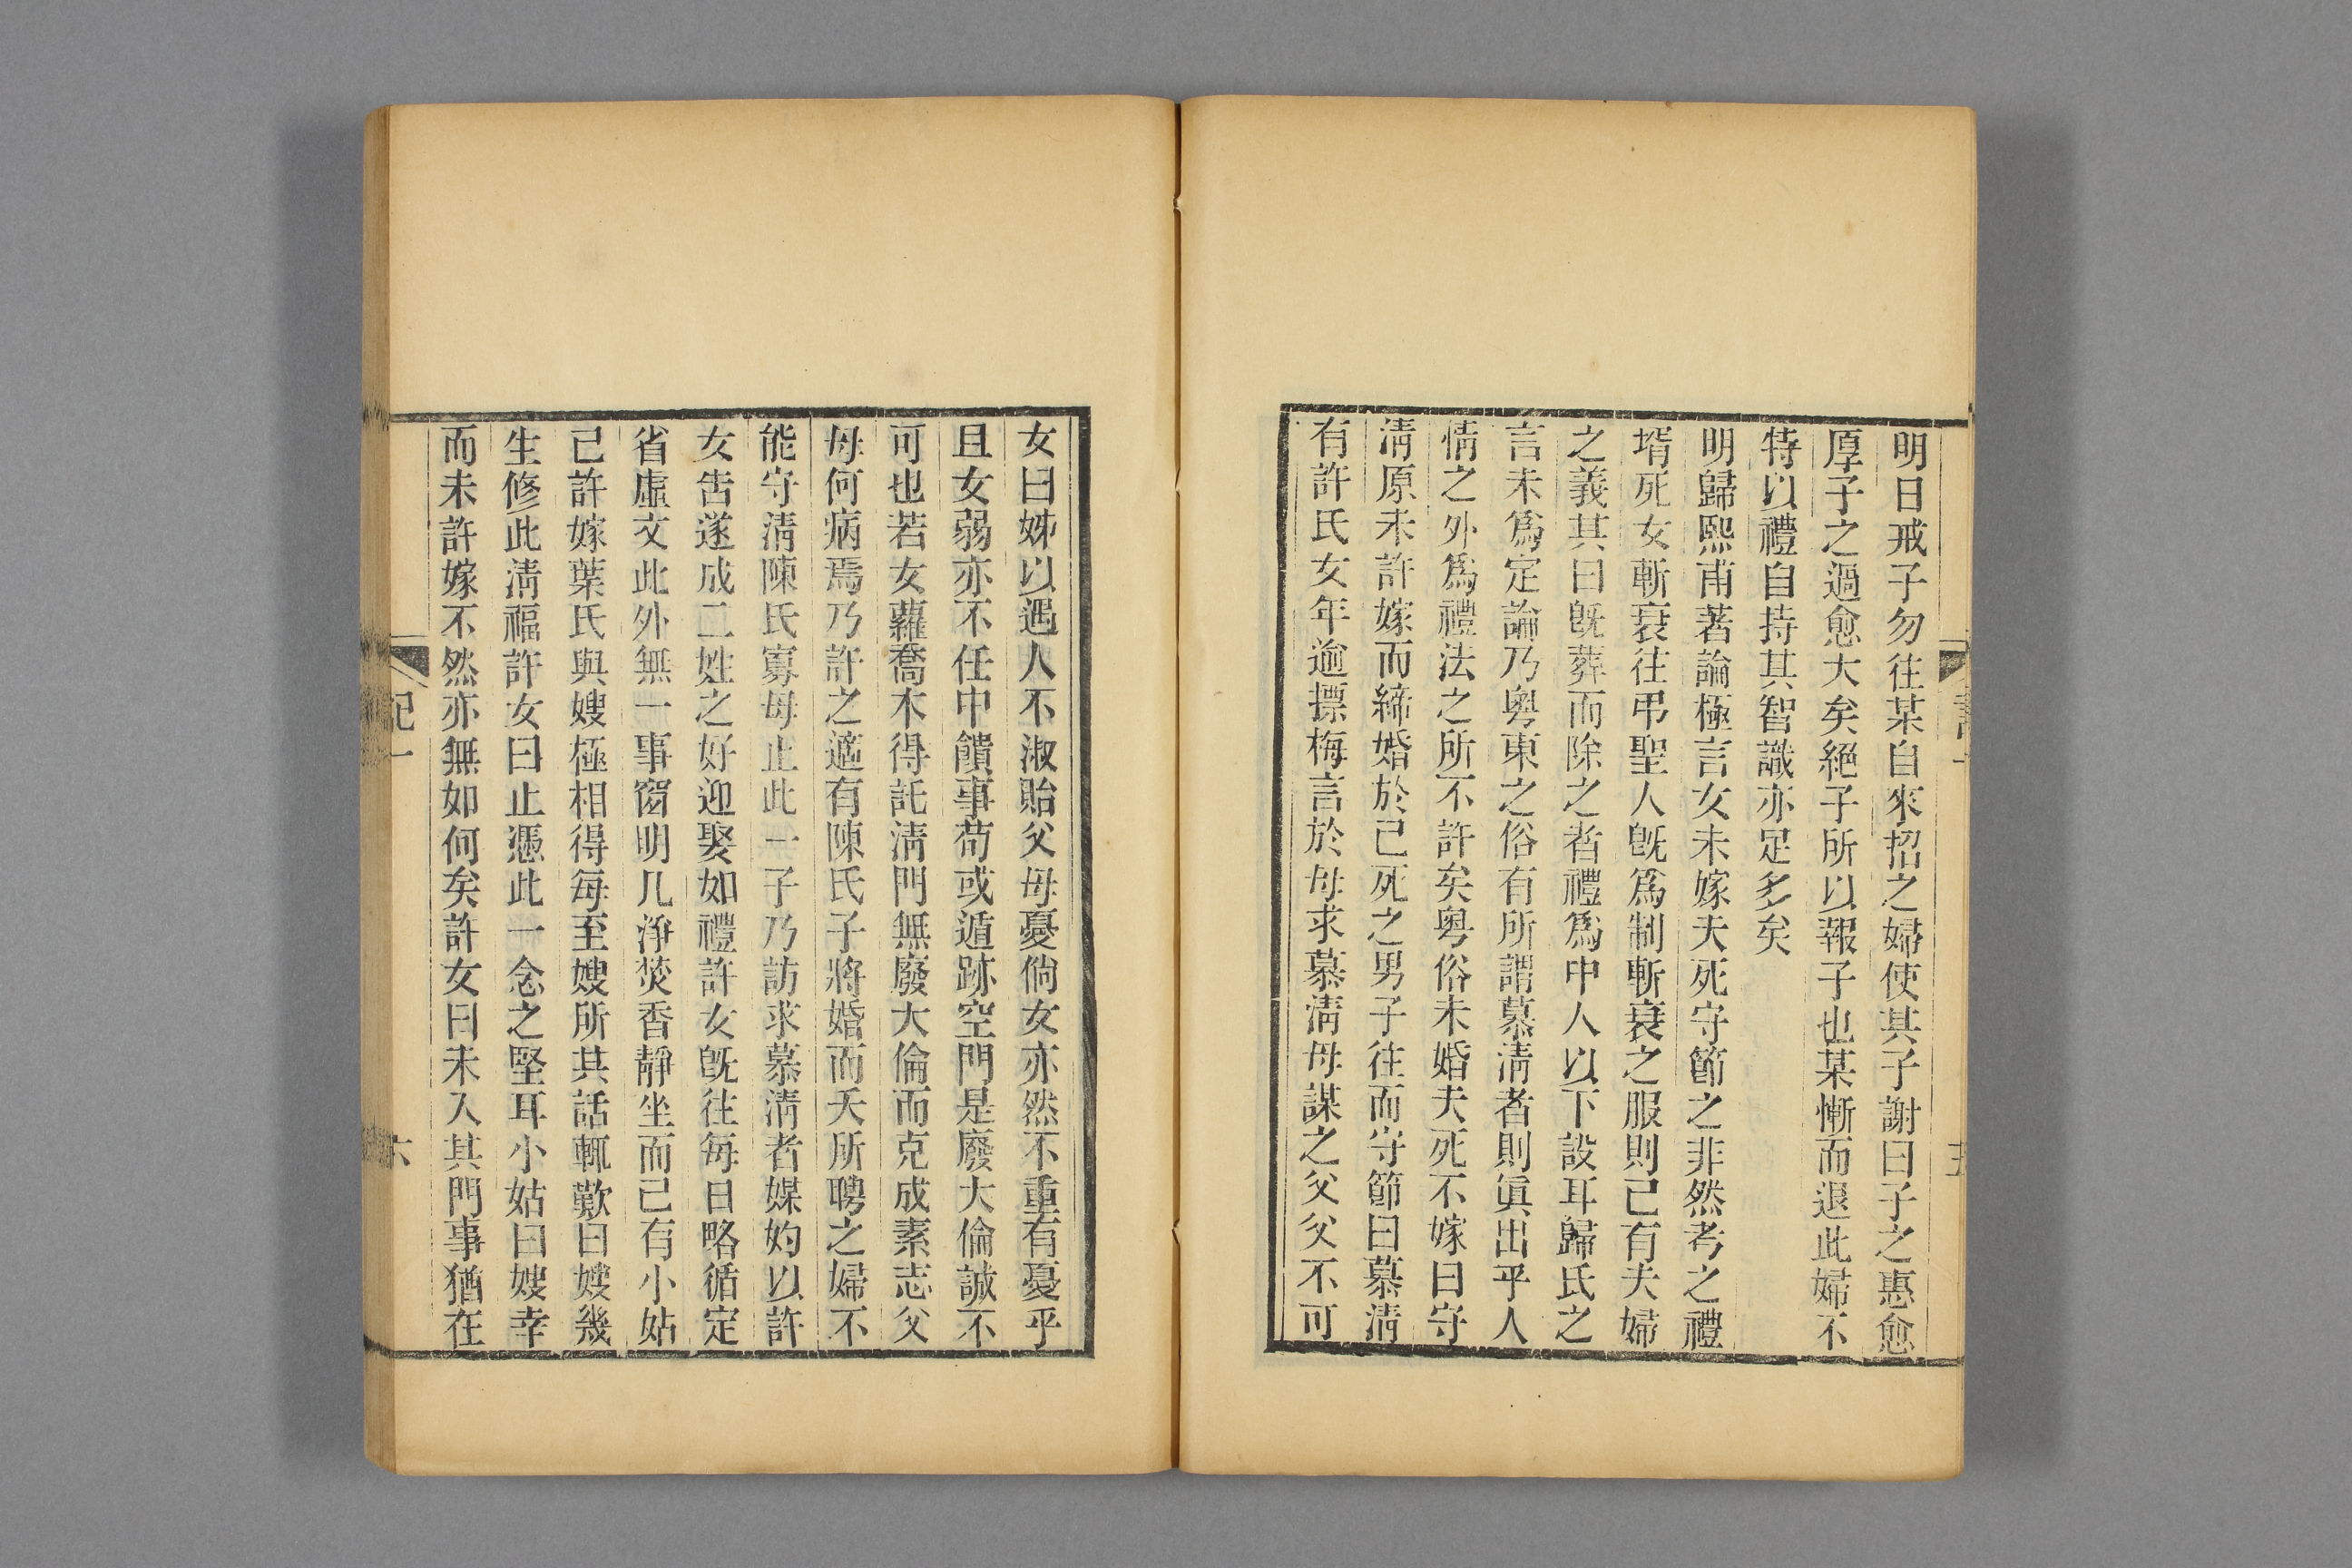 明日戒子勿往某自來招之婦使其子謝曰子之惠愈
厚子之過愈大矣絕子所以報子也某慚而退此婦不
特以禮自持其智識亦足多矣
明歸熙甫著論極言女未嫁夫死守節之非然考之禮
壻死女斬衰往弔聖人旣爲制斬衰之服則已有夫婦
之義其曰旣葬而除之者禮爲中人以下設耳歸氏之
言未爲定論乃粵東之俗有所謂慕淸者則眞出乎人
情之外爲禮法之所不許矣粵俗未婚夫死不嫁曰守
淸原未許嫁而締婚於已死之男子往而守節曰慕淸
有許氏女年逾摽梅言於母求慕淸母謀之父父不可
女曰姊以遇人不淑貽父母憂倘女亦然不重有憂乎
且女弱亦不任中饋事苟或遁跡空門是廢大倫誠不
可也若女蘿喬木得託淸門無廢大倫而克成素志父
母何病焉乃許之適有陳氏子將婚而夭所聘之婦不
能守淸陳氏寡母止此一子乃訪求慕淸者媒妁以許
女吿遂成二姓之好迎娶如禮許女旣往每日略循定
省虛文此外無一事窗明几淨焚香靜坐而已有小姑
已許嫁葉氏與嫂極相得每至嫂所其話輒歎曰嫂幾
生修此淸福許女曰止憑此一念之堅耳小姑曰嫂幸
而未許嫁不然亦無如何矣許女曰未入其門事猶在
紀一
六